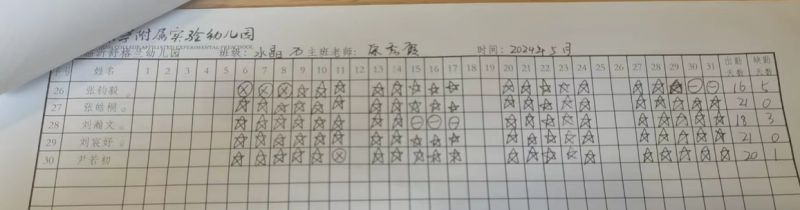 附属实验幼儿园
临沂舒格兰幼儿园 班级: 水晶石 主班老师: 时间: 2024年5月
序号 姓名 1 2 3 4 5 6 7 8 9 10 11 12 13 14 15 16 17 18 19 20 21 22 23 24 25 26 27 28 29 30 31 出勤天数 缺勤天数
26 张钧毅 16 5
27 张皓桐 21 0
28 刘瀚文 18 3
29 刘宸妤 21 0
30 尹若初 20 1